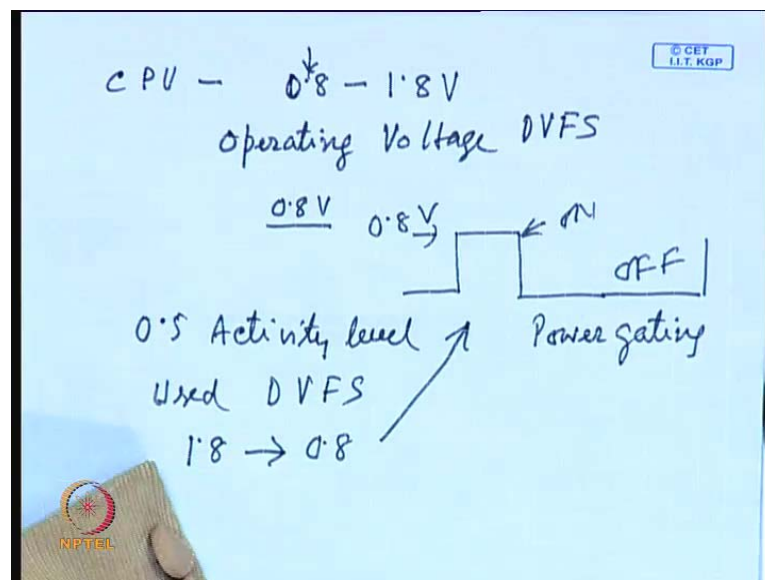 © CET
I.I.T. KGP
CPU - 0.8 - 1.8 V
Operating Voltage DVFS
0.8 V 0.8 V ON
OFF
0.5 Activity level Power gating
Used DVFS
1.8 → 0.8
NPTEL